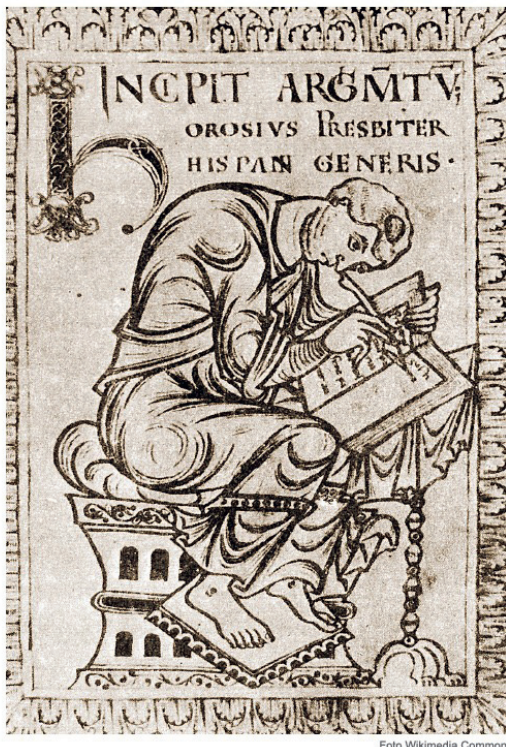 h INCIPIT ARGM̄TV̄
OROSIVS PRESBITER
HISPANI GENERIS·
Foto Wikimedia Common